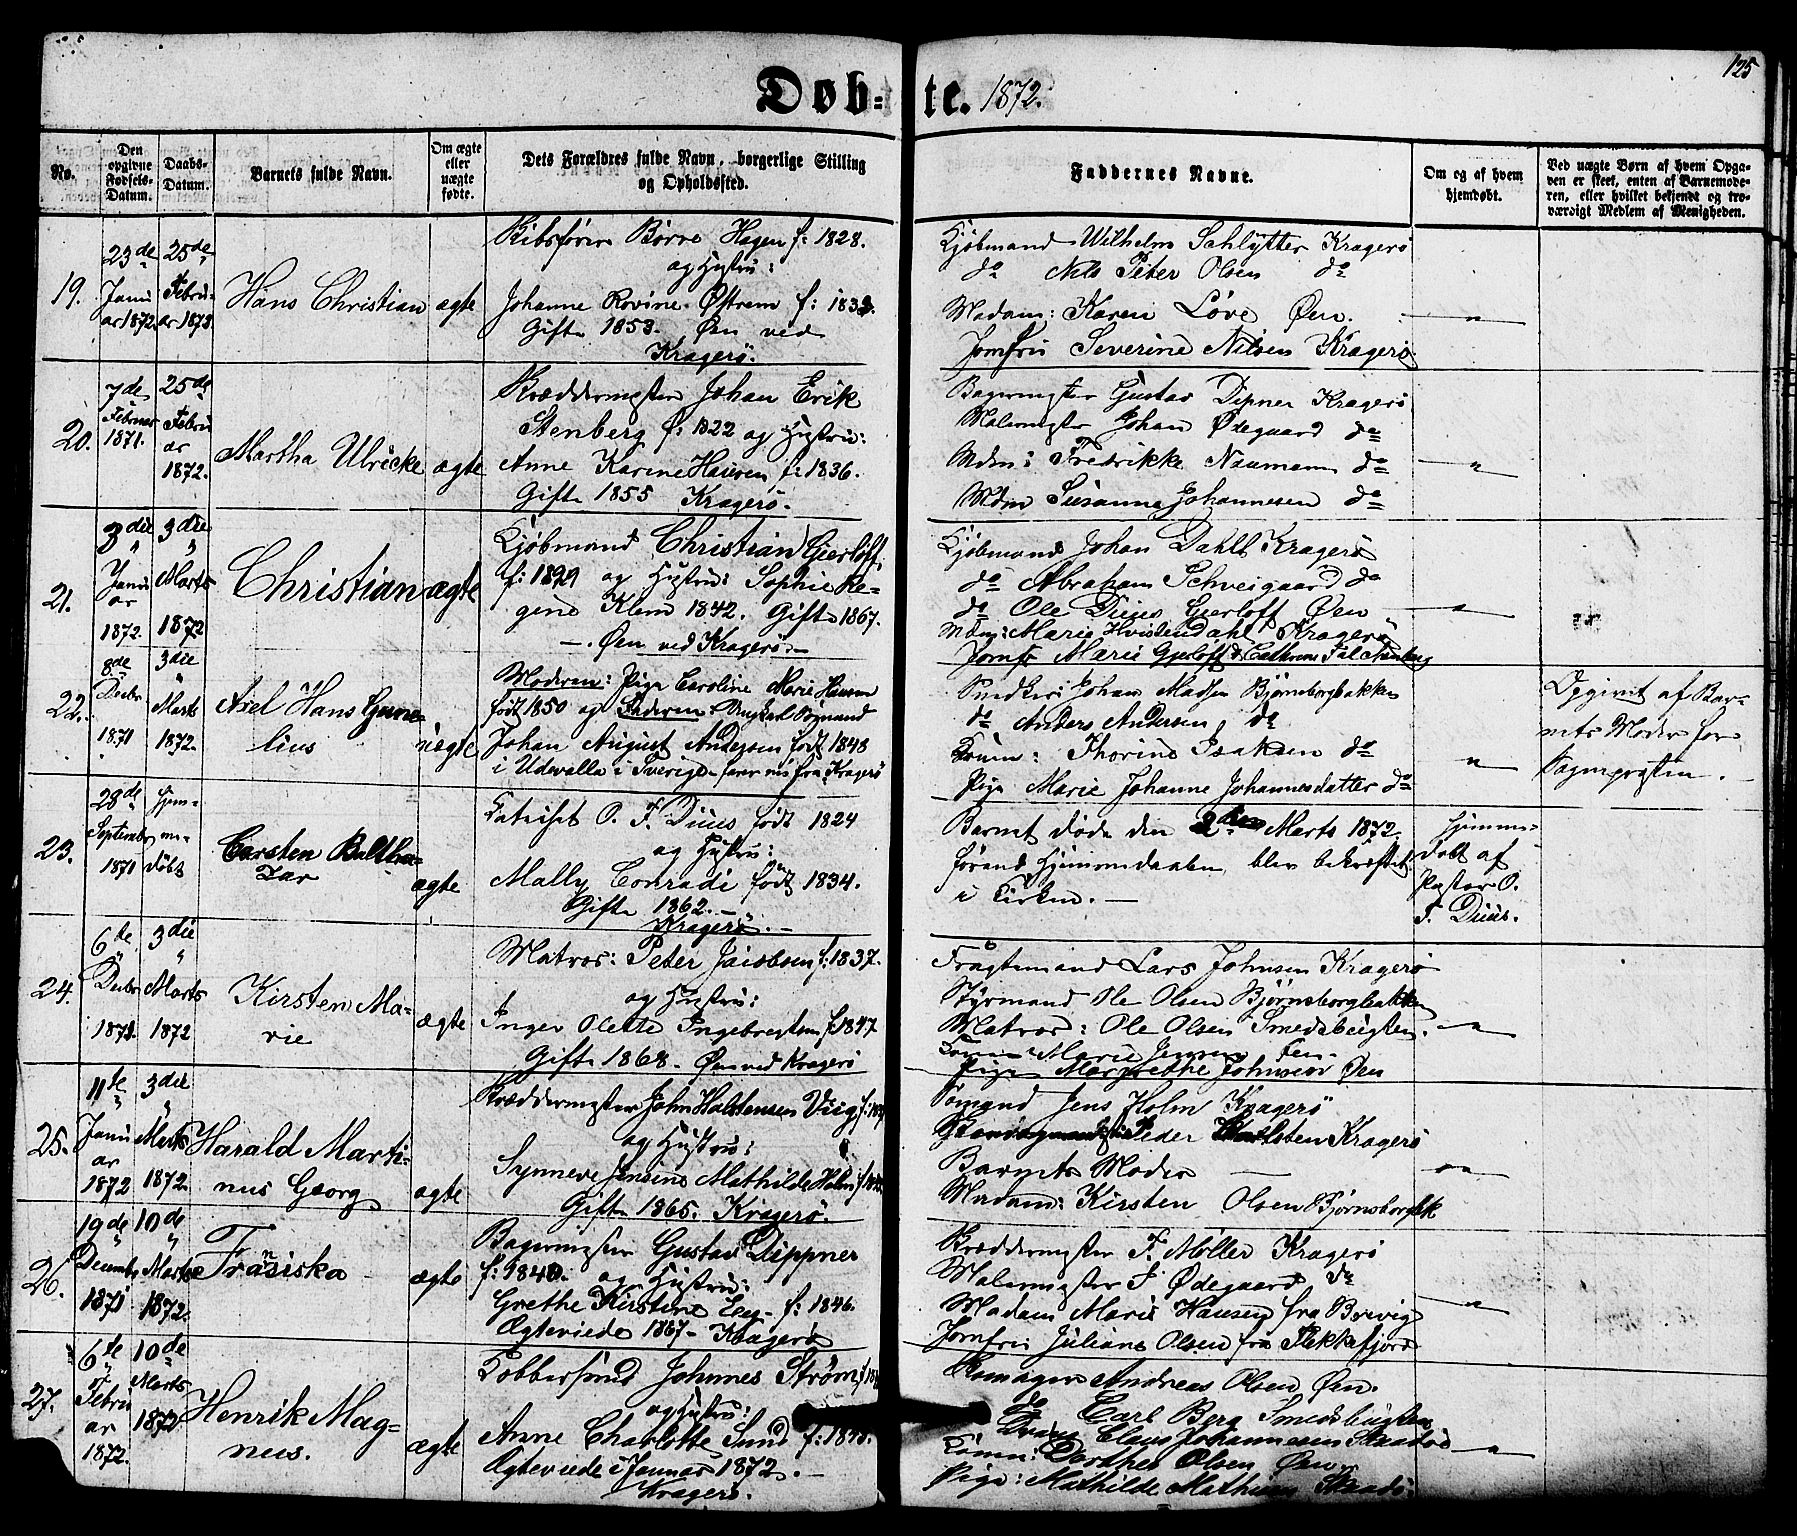 125
Døb-te. 1872.
No.
Den opgivne Fødsels-Datum.
Daabs-Datum.
Barnets fulde Navn.
Om ægte eller uægte fødte.
Dets Forældres fulde Navn, borgerlige Stilling og Opholdssted.
Faddernes Navne.
Om og af hvem hjemdøbt.
Ved uægte Børn af hvem Opga-
ven er skeet, enten af Barnemode-
ren, eller hvilket bekjendt og tro-
værdigt Medlem af Menigheden.
19.
23de Janu ar 1872.
25de Febru ar 1873.
Hans Christian
ægte
Børre Hagen f: 1828.
og Hustru:
Johanne Østrem
Gift 1853. Øen ved
Kragerö.
Kjöbmand Wilhelm Schlytter Kragerö
do Nils Peter Olsen do
Madam: Karen Löve Øen.
Jomfru Severine Nilsen Kragerö
"
20.
7de Februar 1871.
25de Febru ar 1872.
Martha Ulricke
ægte
Johan Erik
Stenberg f: 1822 og Hustru:
Anne Karine f: 1836.
Gift 1855 Kragerö.
Bagermester Gustav Dipner Kragerö
Malermester Johan Ødegaard do
Mdm: Fredrikke Naumann do
Mdm Susanne Johannesen do
"
21.
3die " Janu ar 1872.
3die " Marts 1872
Christian
ægte
Kjöbmand Christian Gierløff,
og Hustru: Sophie Re-
gine Klem 1842. Gift 1867.
— Øen ved Kragerö. —
Kjöbmand Johan Dahll Kragerö
do Abraham Schveigaard do
do Ole Duus Gierløff Øen
Mdm: Marie Hvistendahl Kragerö
Jomfr Marie Gjerløff & Cathrine Falchenberg
"
22.
8de Decbr 1871
3die " Marts 1872.
Axel Hans Corne-
lius
uægte
Moderen: Pige Caroline Marie Hansen
født 1850 og Faderen: Ungkarl Sømand
Johan August Andersen født 1848
i Udevalla i Sverige farer nu fra Kragerö
Snedker: Johan Madsen Bjørnsborgbakken
do Anders Andersen do
Konen: Thorine Isaksen do
Pige Marie Johanne Johannesdatter do
"
Opgivet af Bar-
nets Moder for
Sognepræsten.
23.
28de September 1871
hjem-me-døbt
Carsten Baltha-
zar
ægte
O. F. Duus født 1824
og Hustru:
Mally Conradi født 1834.
Gift 1862. —
Kragerö. —
Barnet døde den Marts 1872.
forend Hjemmedaaben blev bekræftet
i Kirken. —
Hjemme-
døbt af
Pastor O.
F. Duus.
24.
6te " Decbr 1871.
3die " Marts 1872
Kirsten Ma-
rie
ægte
Matros: Peter Jacobsen f: 1837.
og Hustru:
Inger Olette Ingebregtsen f 1847
Gift 1868. Øen ved Kragerö
Fragtemand Lars Johnsen Kragerö
Styrmand Ole Olsen Bjørnsborgbakken
Matros: Ole Olsen Smedsbugten.
Konen: Marie Jensen Øen
Pige Margrethe Johnsen Øen
"
25.
11te " Janu ar 1872
3die " Marts 1872.
Harald Marti-
nus Georg
ægte
Skræddermester John Halstensen
og Hustru:
Synneve Jensine Mathilde Holm
Gift 1865. Kragerö.
Sømand Jens Holm Kragerö
Peder Kragerö
Barnets Moder —
Madam: Kirsten Olsen Bjørnsborgbk
"
26.
19de " December 1871
10de " Marts 1872.
Fransiska
ægte
Bagermester Gustav Dippner
f: 1840. og Hustru:
Grethe Kirstine f: 1846.
Ægteviede 1867 - Kragerö
Skræddermester F. Møller Kragerö
Malermester J. Ødegaard do
Madam Marie Hansen fra Brevig
Jomfru Juliane Olsen fra Flekkefjord
"
27.
6te " Febru ar 1872.
10de Marts 1872
Henrik Mag-
nus.
ægte
Kobbersmed Johnnes Strøm
og Hustru:
Anne Charlotte Sund f: 1848.
Ægteviede i Januar 1872. —
Kragerö.
Andreas Olsen Øen.
do Carl Berg Smedsbugten
Claus Johannesen Skaadö
Konen: Dorthea Olsen Øen
Pige: Mathilde Mathisen Skaadö.
"